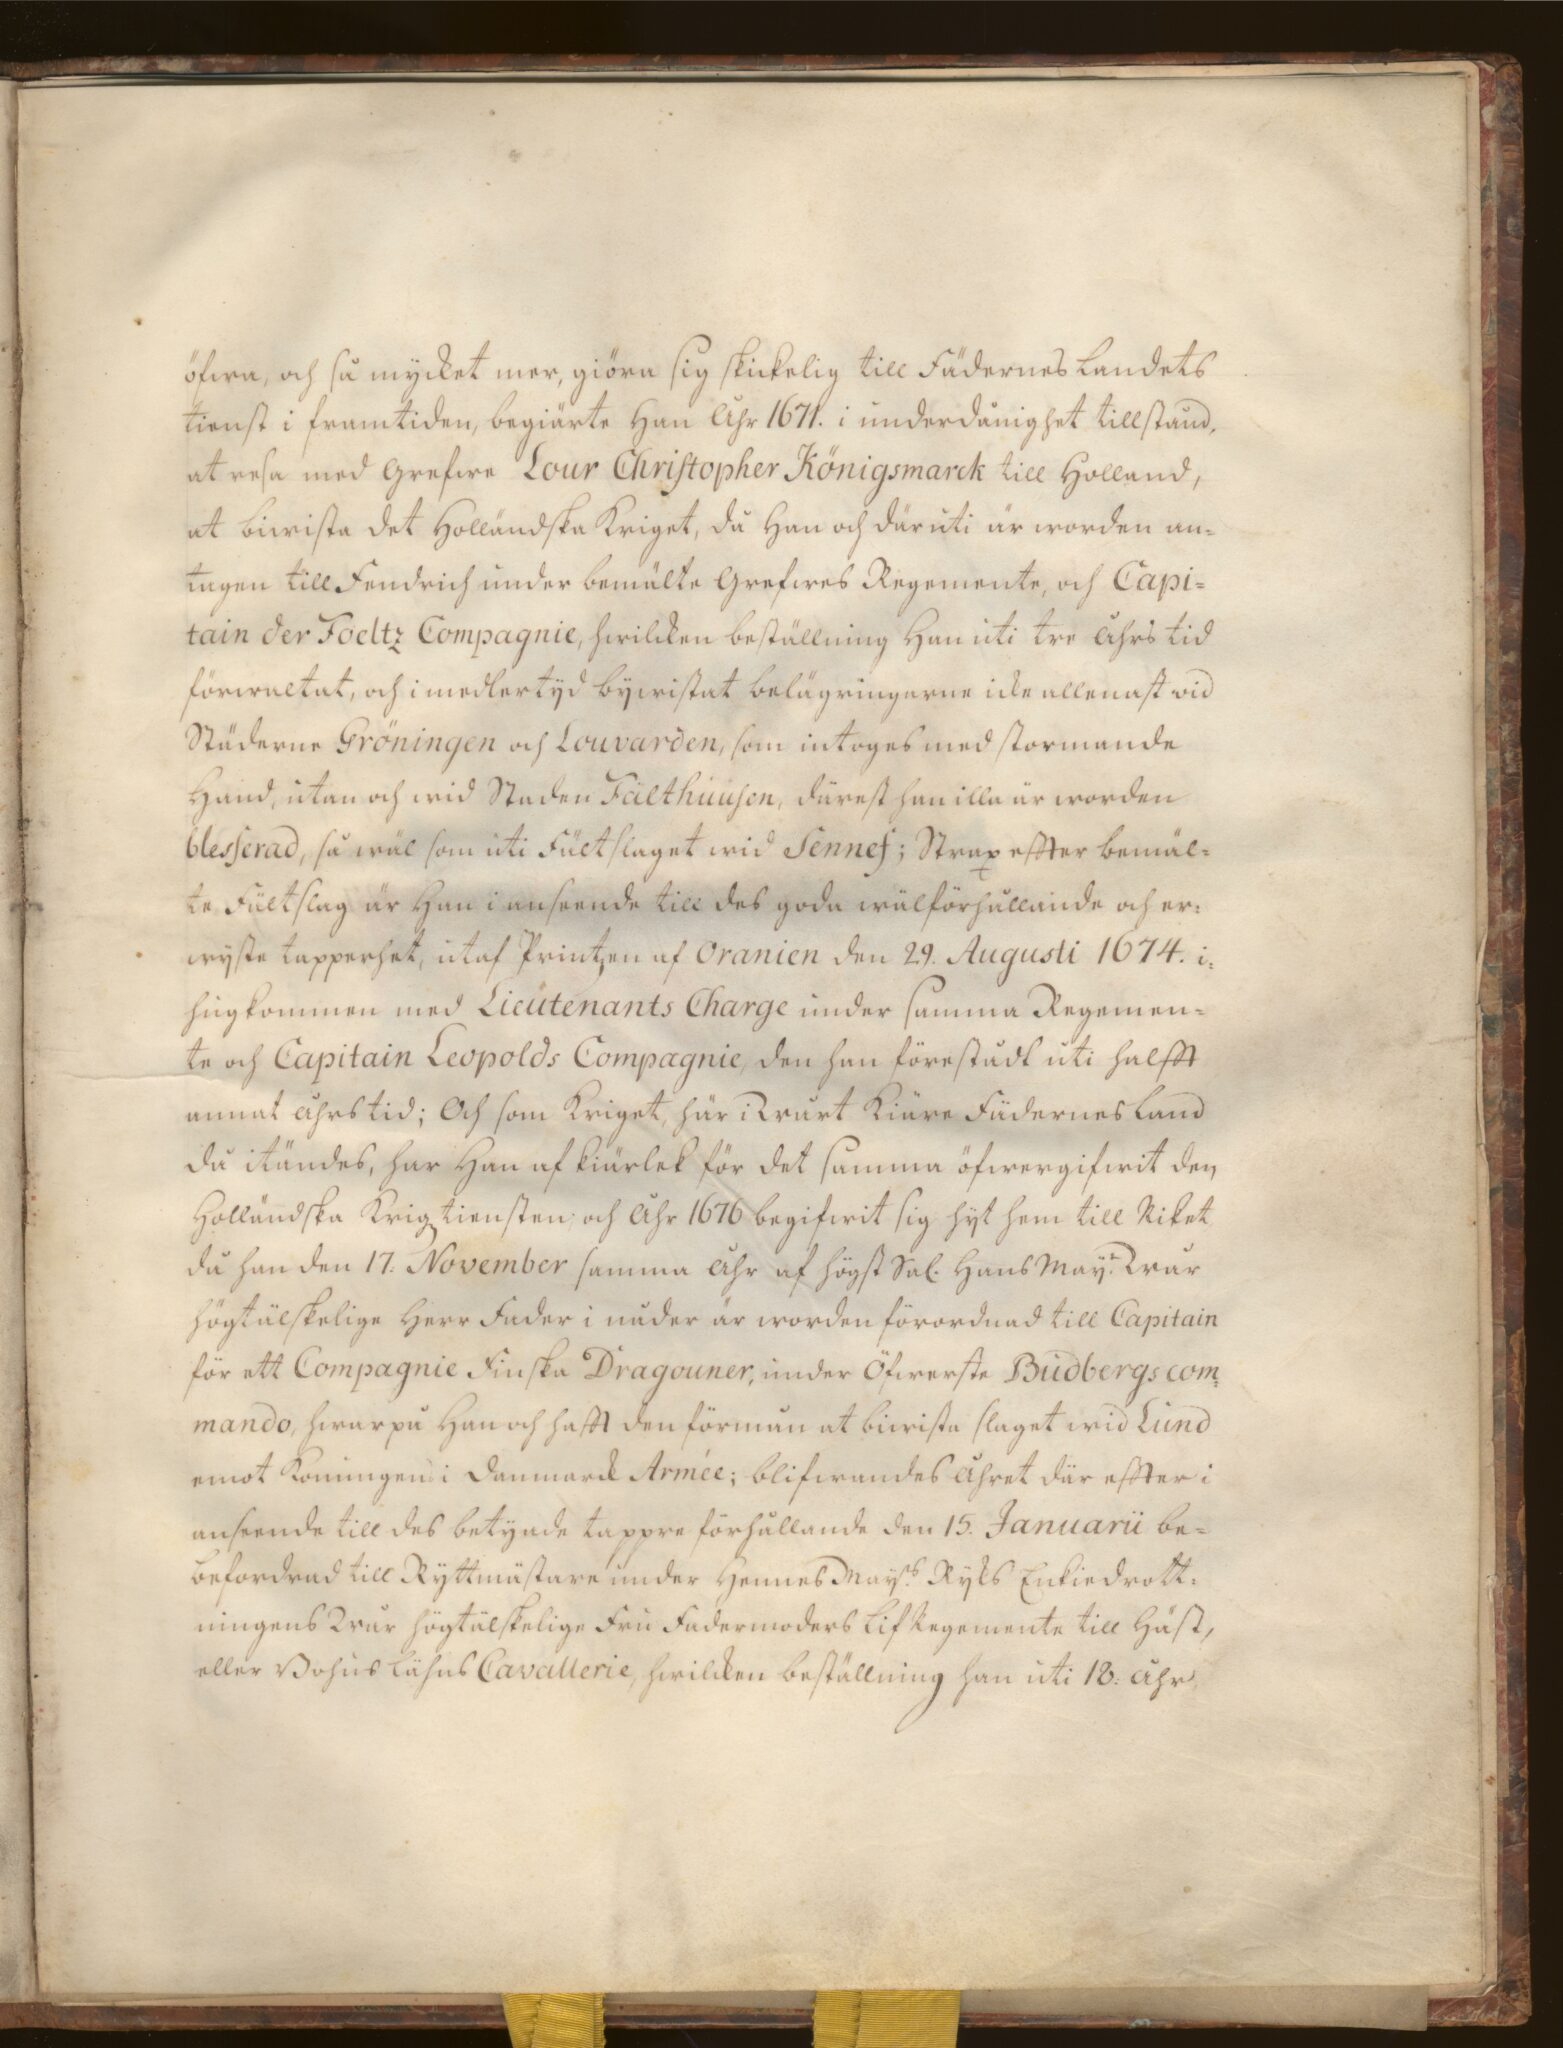 öfwa, och så mycket mer, giöra sig skickelig till Fädernes Landets
tienst i framtiden, begiärte Han Åhr 1671. i underdånighet tillstånd,
at resa med Grefwe Cour Christopher Königsmarck till Holland,
at biwista det Holländska Kriget, då Han och däruti är worden an-
tagen till Fendrich under bemälte Grefwes Regemente, och Capi-
tain der Foeltz Compagnie, hwilcken beställning Han uti tre Åhrs tid
förwaltat, och i medlertyd bywistat belägringarne icke allenast wid
Städerne Gröningen och Louvarden, som intoges med stormande
Hand, utan och wid Staden Fälthuusen, därest han illa är worden
blesserad, så wäl som uti Fältslaget wid Sennef; Strax effter bemäl-
te Fältslag är Han i anseende till des goda wälförhållande och er-
wyste tapperhet, utaf Printzen af Oranien den 29. Augusti 1674. i-
hugkommen med Lieutenants Charge under samma Regemen-
te och Capitain Leopolds Compagnie, den han förestådt uti halfft
annat Åhrs tid; Och som Kriget, här i Wårt Kiäre Fädernes Land
då itändes, har Han af kiärlek för det samma öfwergifwit den
Holländska Krigztiensten, och Åhr 1676 begifwit sig hyt hem till Riket
då han den 17. November samma Åhr af högst Sal. Hans May:tt Wår
högtälskelige Herr Fader i nåder är worden förordnad till Capitain
för ett Compagnie Finska Dragouner, under Öfwerste Budbergs com-
mando, hwarpå Han och hafft den förmån at biwista slaget wid Lund
emot Konungens i Danmarck Armée; blifwandes Åhret där effter i
anseende till des betygade tappre förhållande den 15. Januarii be-
befordrad till Ryttmästare under Hennes May:tz Ryks Enkiedrott-
ningens Wår högtälskelige Fru Fadermoders Lif Regemente till Häst,
eller Bohus Lähns Cavallerie, hwilcken beställning han uti 18. Åhr